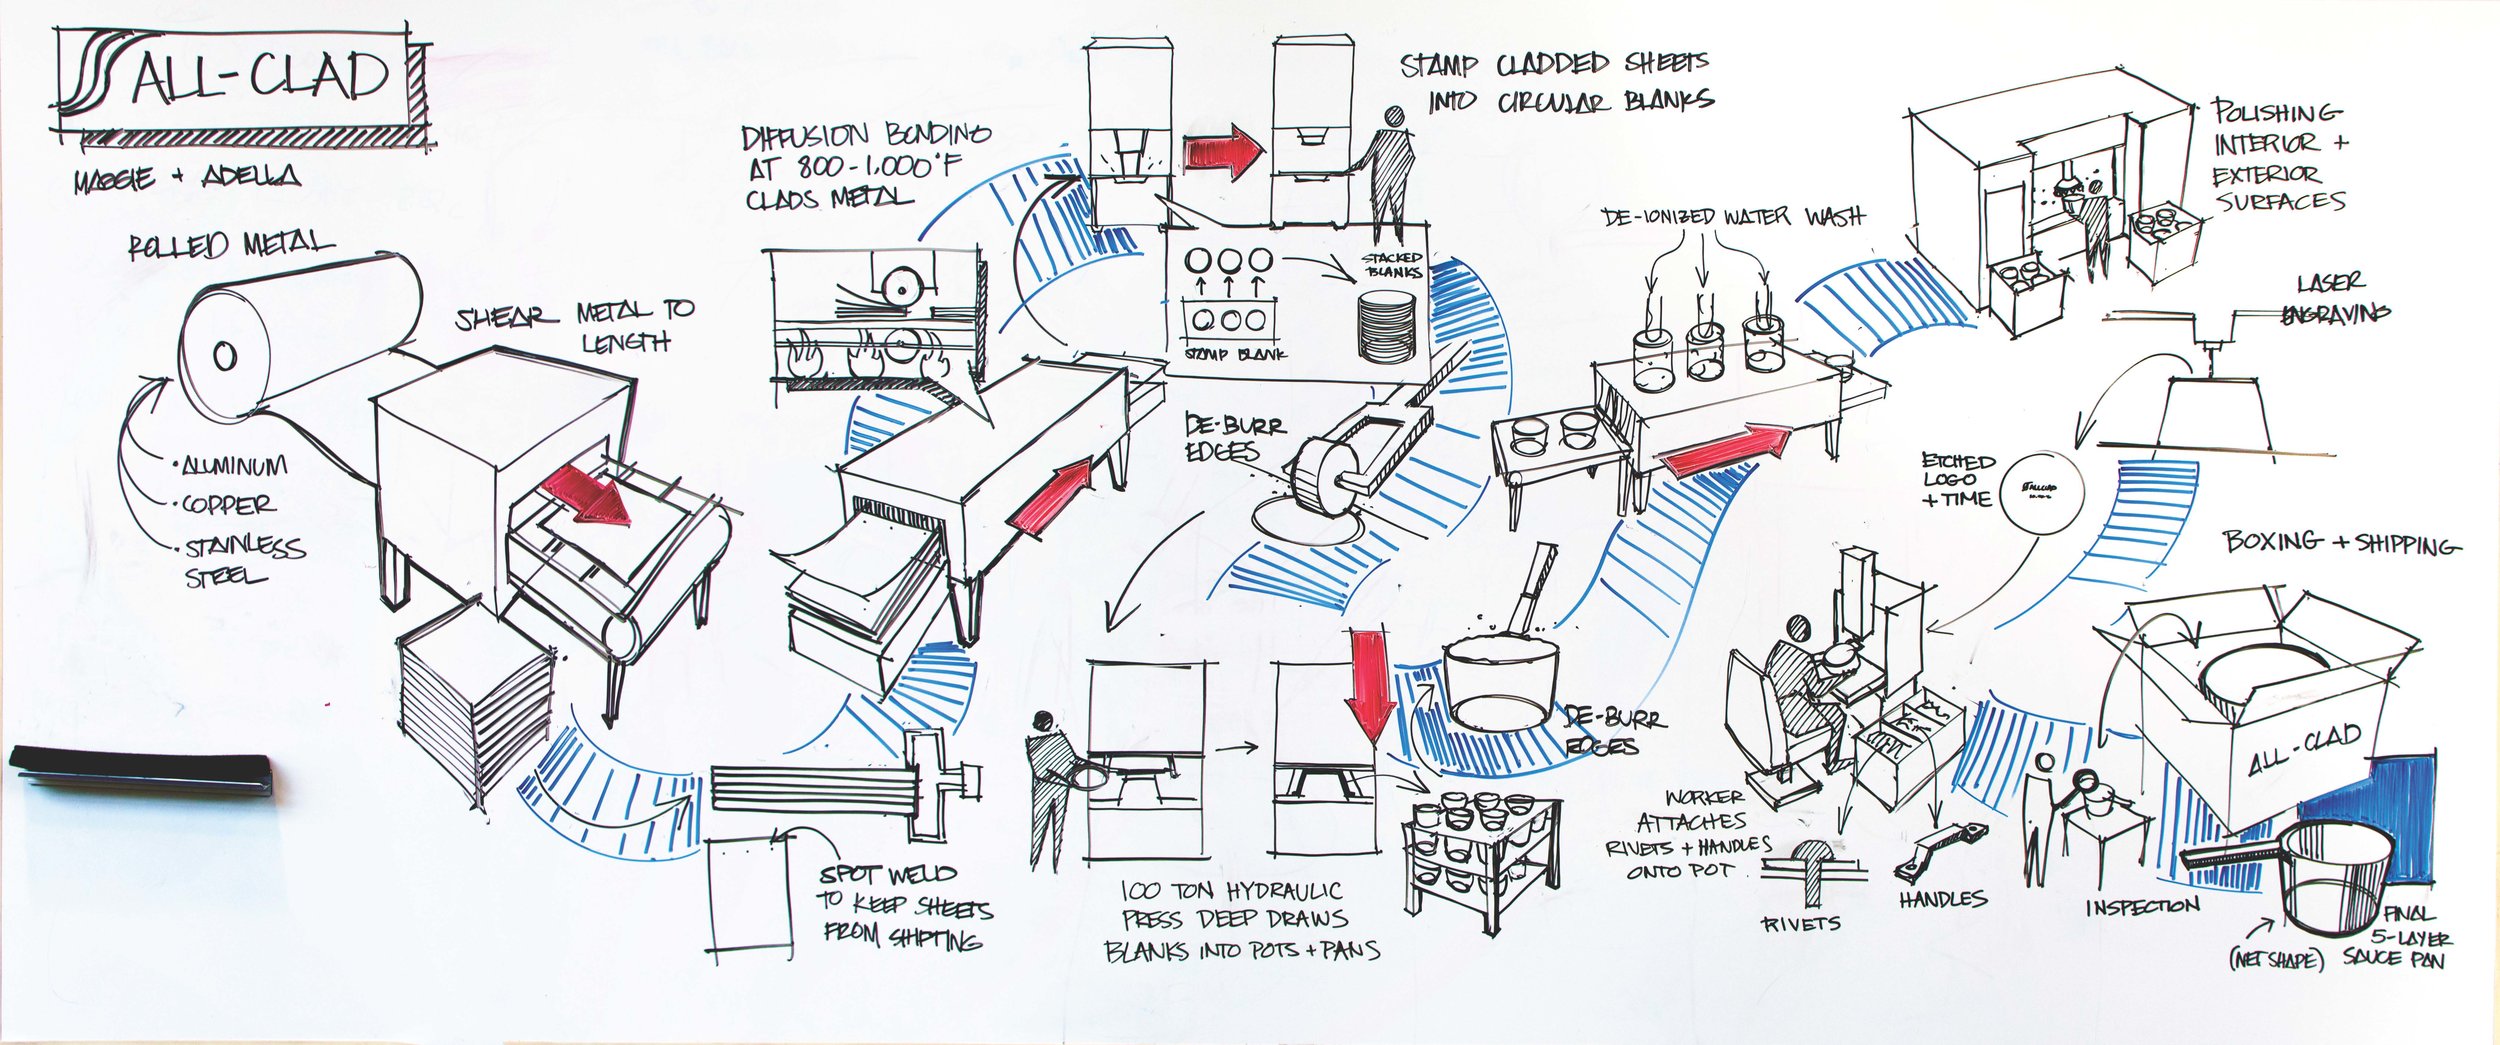 ALL-CLAD
MAGGIE + ADELLA
ROLLED METAL
• ALUMINUM
• COPPER
• STAINLESS
STEEL
SHEAR METAL TO
LENGTH
SPOT WELD
TO KEEP SHEETS
FROM SHIFTING
DIFFUSION BONDING
AT 800-1,000°F
CLADS METAL
STAMP CLADDED SHEETS
INTO CIRCULAR BLANKS
STACKED
BLANKS
STAMP BLANK
DE-BURR
EDGES
100 TON HYDRAULIC
PRESS DEEP DRAWS
BLANKS INTO POTS + PANS
DE-BURR
EDGES
DE-IONIZED WATER WASH
POLISHING
INTERIOR +
EXTERIOR
SURFACES
LASER
ENGRAVING
ETCHED
LOGO
+ TIME
ALLCLAD
WORKER
ATTACHES
RIVETS + HANDLES
ONTO POT
RIVETS
HANDLES
INSPECTION
BOXING + SHIPPING
ALL-CLAD
(NET SHAPE)
FINAL
5-LAYER
SAUCE PAN